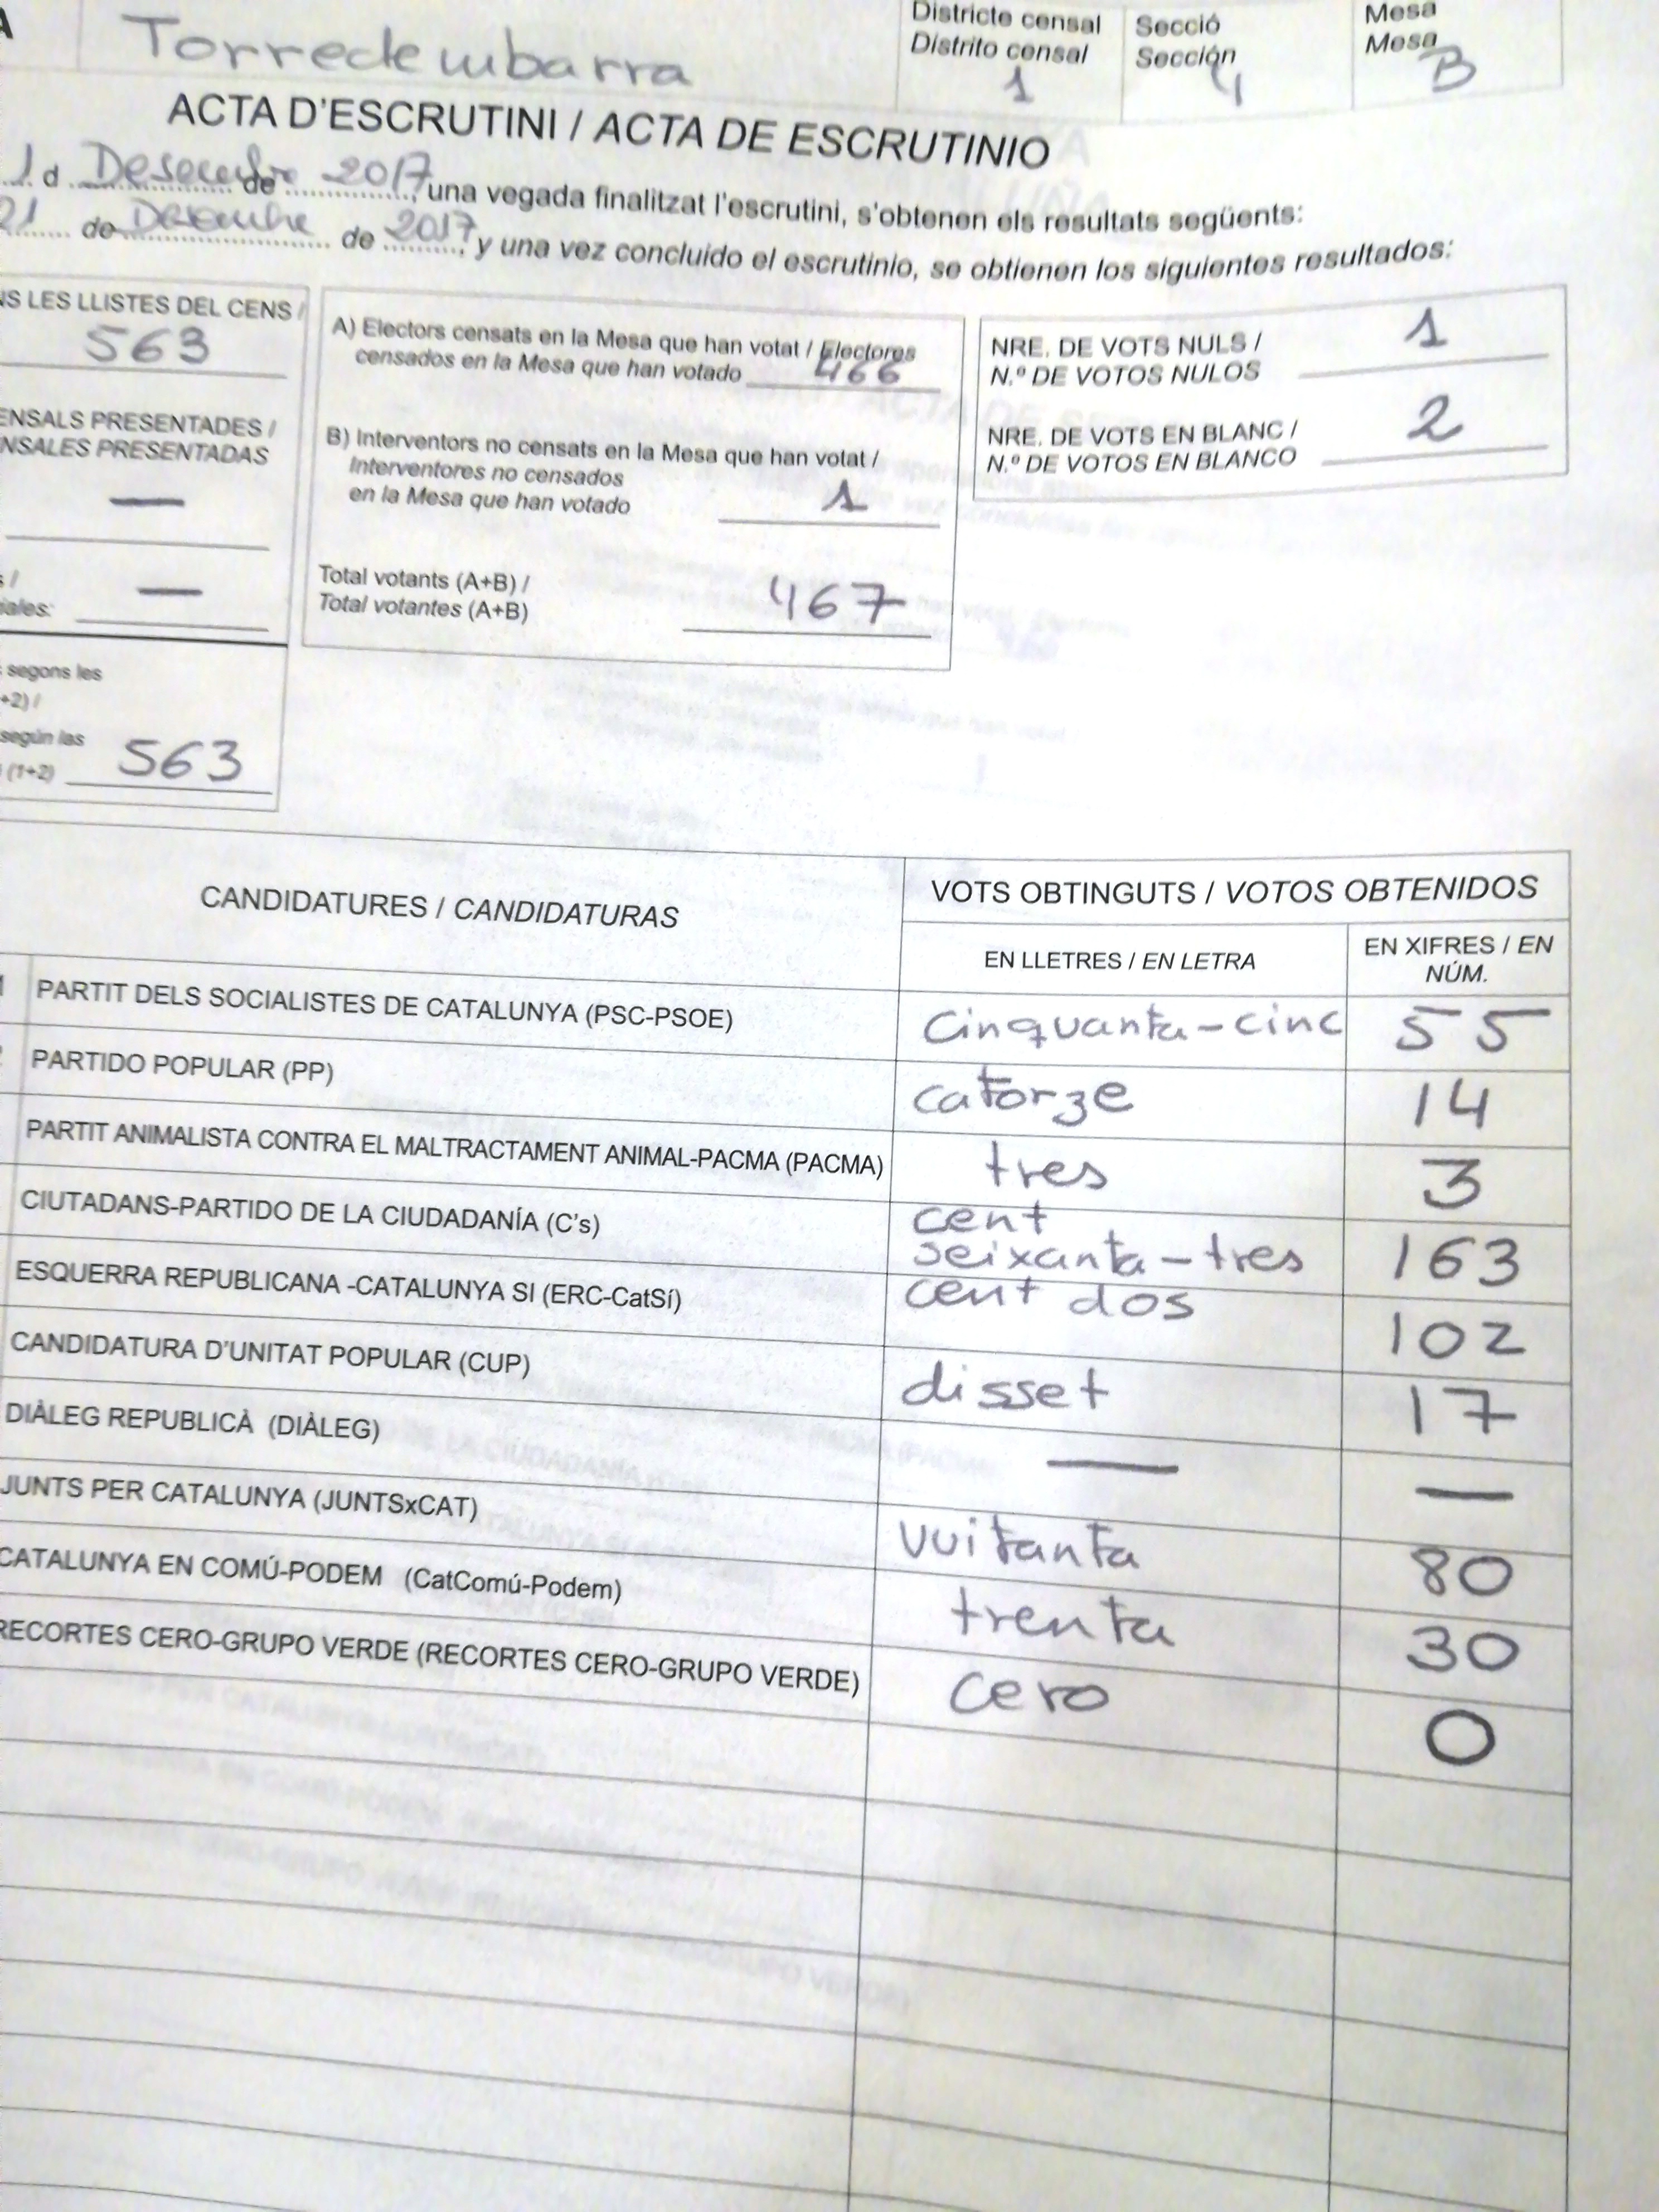 A Torredembarra
Districte censal
Distrito censal
1
Secció
Sección
4
Mesa
Mesa
B
ACTA D'ESCRUTINI / ACTA DE ESCRUTINIO
1 d Desembre de 2017, una vegada finalitzat l'escrutini, s'obtenen els resultats següents:
21 de Desembre de 2017, y una vez concluido el escrutinio, se obtienen los siguientes resultados:
NS LES LLISTES DEL CENS /
563
ENSALS PRESENTADES /
NSALES PRESENTADAS
—
s /
iales: —
segons les
+2) /
según las
(1+2) 563
A) Electors censats en la Mesa que han votat / Electores
censados en la Mesa que han votado 466
B) Interventors no censats en la Mesa que han votat /
Interventores no censados
en la Mesa que han votado 1
Total votants (A+B) /
Total votantes (A+B) 467
NRE. DE VOTS NULS /
N.º DE VOTOS NULOS 1
NRE. DE VOTS EN BLANC /
N.º DE VOTOS EN BLANCO 2
CANDIDATURES / CANDIDATURAS
VOTS OBTINGUTS / VOTOS OBTENIDOS
EN LLETRES / EN LETRA
EN XIFRES / EN
NÚM.
1 PARTIT DELS SOCIALISTES DE CATALUNYA (PSC-PSOE) Cinquanta-cinc 55
2 PARTIDO POPULAR (PP) catorze 14
PARTIT ANIMALISTA CONTRA EL MALTRACTAMENT ANIMAL-PACMA (PACMA) tres 3
CIUTADANS-PARTIDO DE LA CIUDADANÍA (C's) cent
seixanta-tres 163
ESQUERRA REPUBLICANA -CATALUNYA SI (ERC-CatSí) cent dos 102
CANDIDATURA D'UNITAT POPULAR (CUP) disset 17
DIÀLEG REPUBLICÀ (DIÀLEG) — —
JUNTS PER CATALUNYA (JUNTSxCAT) vuitanta 80
CATALUNYA EN COMÚ-PODEM (CatComú-Podem) trenta 30
RECORTES CERO-GRUPO VERDE (RECORTES CERO-GRUPO VERDE) cero 0